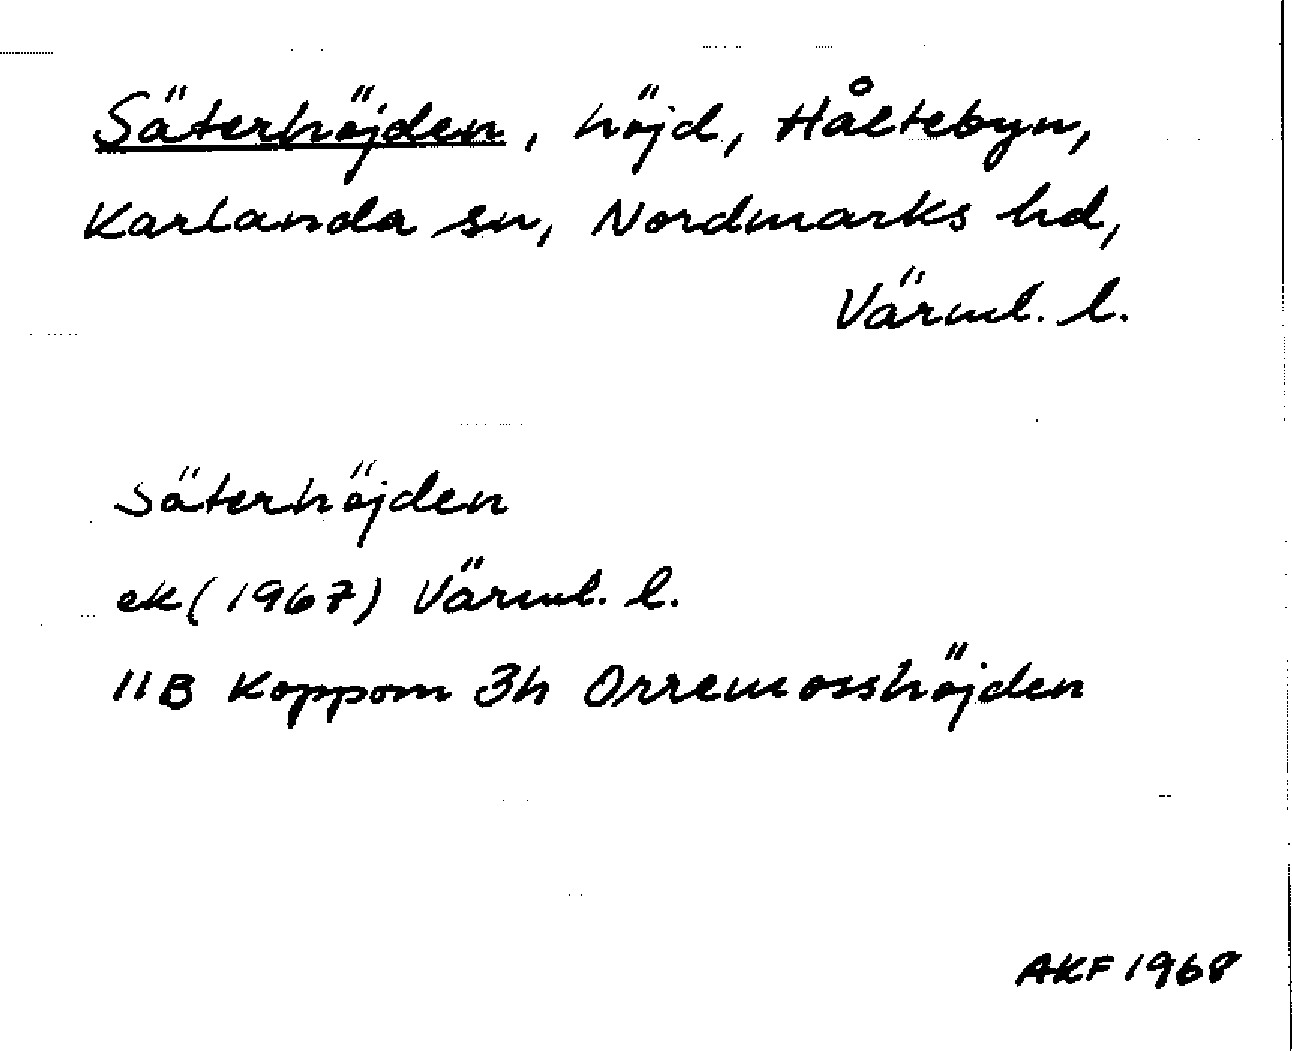 Säterhöjden, höjd, Håltebyn,
Karlanda sn, Nordmarks hd,
Värml. l.
Säterhöjden
ek (1967) Värml. l.
11B Koppom 3h Orremosshöjden
AKF 1968